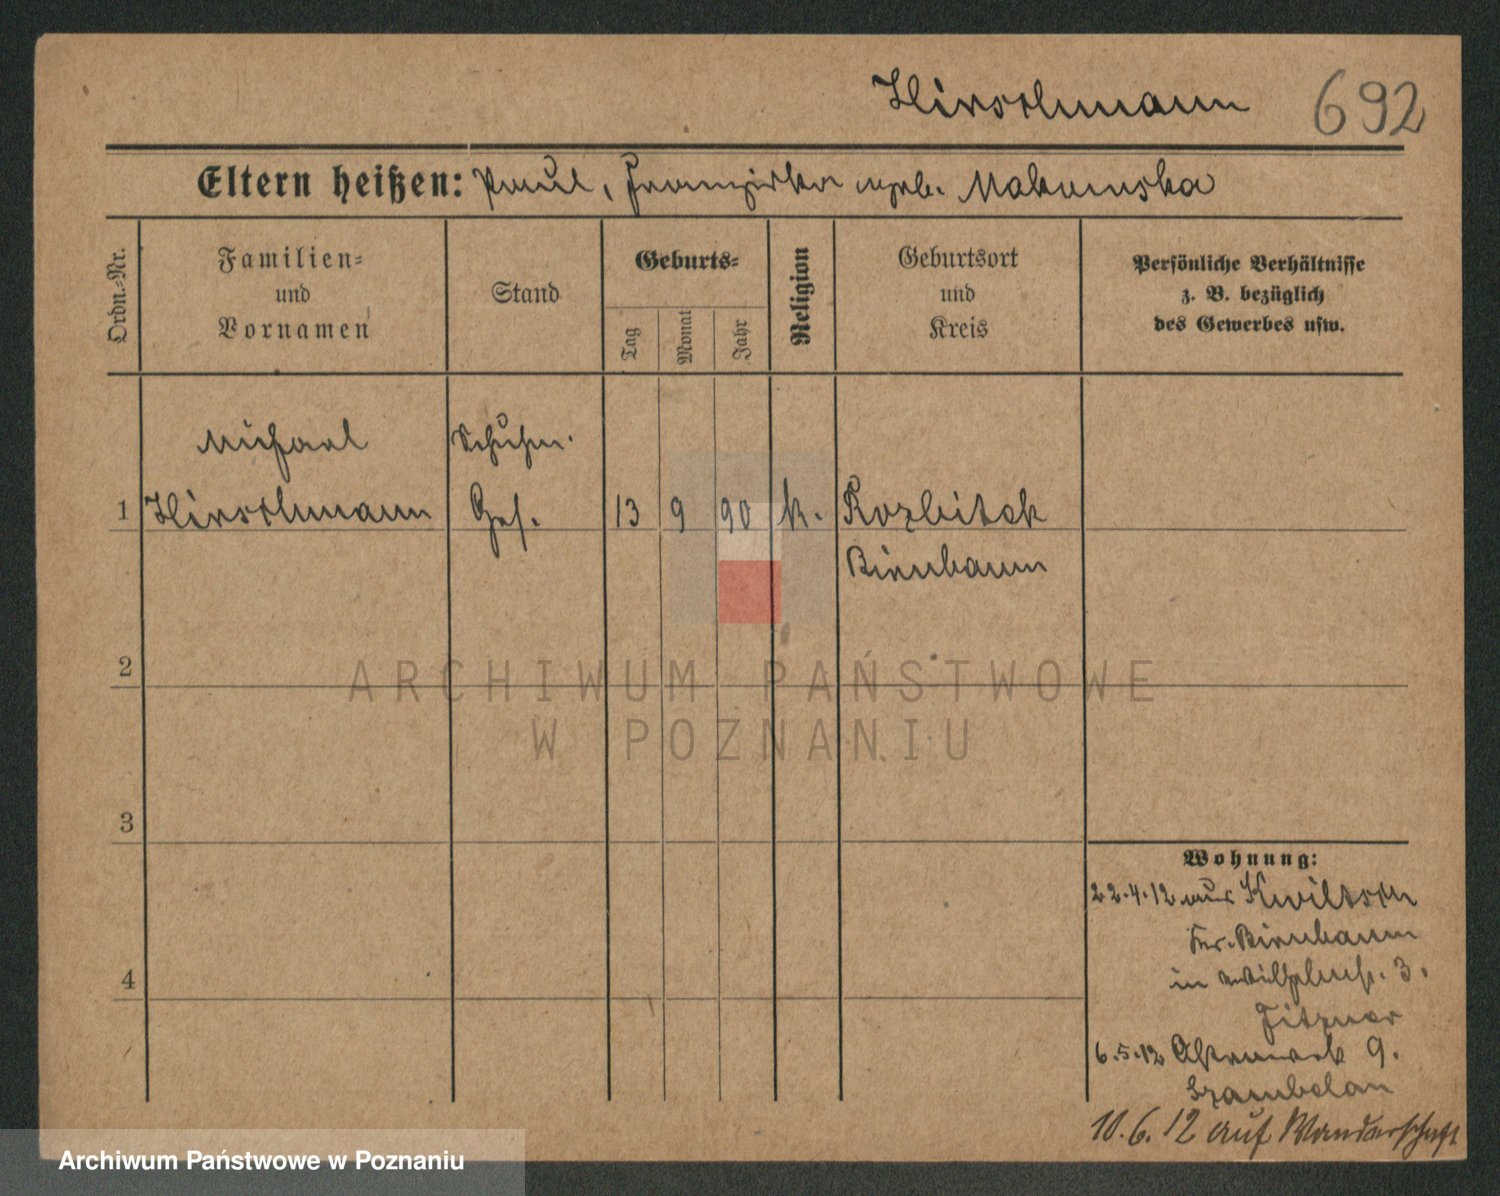 Hirschmann 692
Eltern heißen: Paul, Franziska geb. Makowska
Ordn.-Nr.
Familien- und Vornamen
Stand
Geburts-
Tag
Monat
Jahr
Religion
Geburtsort und Kreis
Persönliche Verhältnisse
z. B. bezüglich
des Gewerbes usw.
Michael Schuhm.
1 Hirschmann Ges. 13 9 90 k. Rozbitek
Birnbaum
2
3
4
Wohnung:
22.4.12 aus Kwiltsch
Kr. Birnbaum
in 3.
Fitzner
6.5.12 9.
Szambelan
10.6.12 auf Wanderschaft
ARCHIWUM PAŃSTWOWE
W POZNANIU
Archiwum Państwowe w Poznaniu